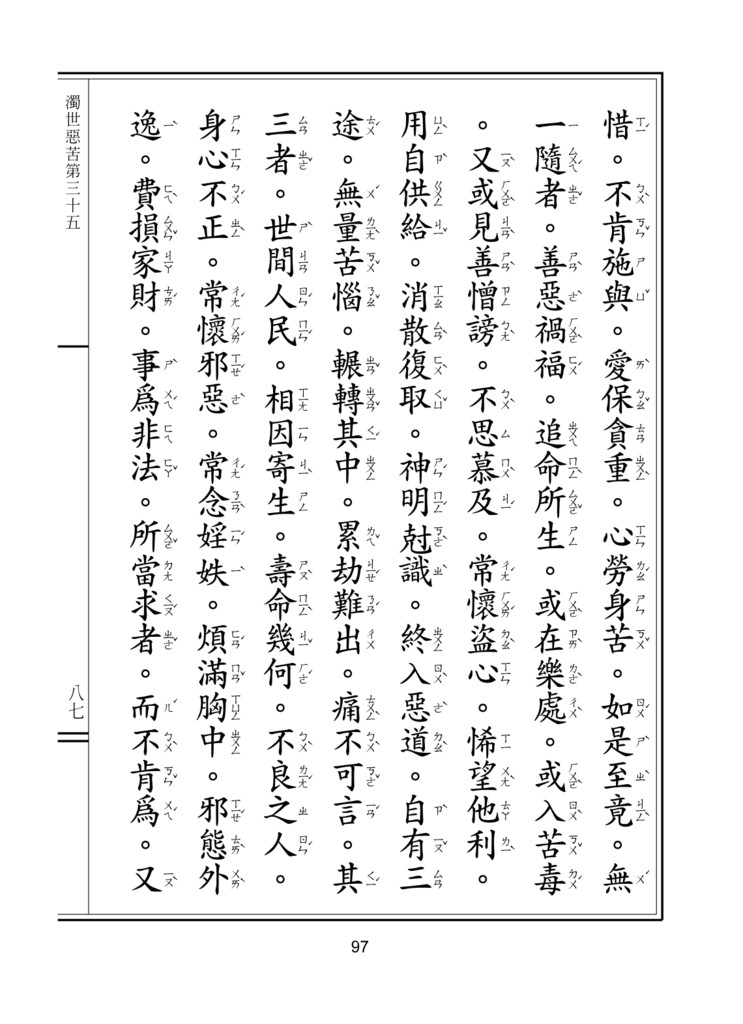 惜。不肯施與。愛保貪重。心勞身苦。如是至竟。無
一隨者。善惡禍福。追命所生。或在樂處。或入苦毒
。又或見善憎謗。不思慕及。常懷盜心。悕望他利。
用自供給。消散復取。神明尅識。終入惡道。自有三
途。無量苦惱。輾轉其中。累劫難出。痛不可言。其
三者。世間人民。相因寄生。壽命幾何。不良之人。
身心不正。常懷邪惡。常念婬妷。煩滿胸中。邪態外
逸。費損家財。事為非法。所當求者。而不肯為。又
濁世惡苦第三十五
八七
97